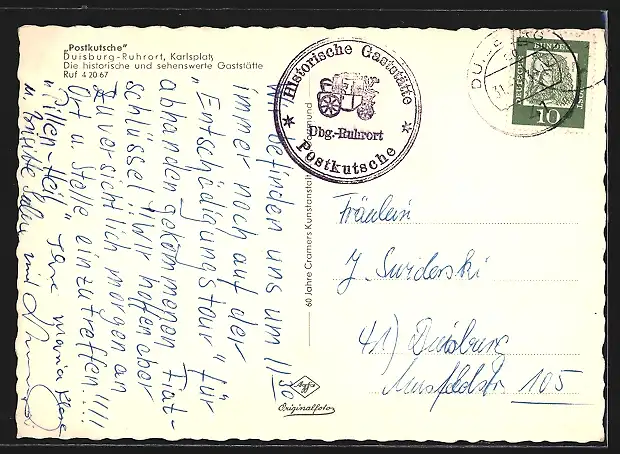 „Postkutsche“
Duisburg-Ruhrort, Karlsplatz
Die historische und sehenswerte Gaststätte
Ruf 4 20 67
Historische Gaststätte
Dbg.-Ruhrort
Postkutsche
60 Jahre Cramers Kunstanstalt Dortmund
Agfa
Originalfoto
DUISBURG
DEUTSCHE BUNDESPOST
10
befinden uns um
immer noch auf der
"Entschädigungstour" für
abhanden gekommenen Fiat-
schlüssel! Wir hoffen aber
zuversichtlich morgen an
Ort u. Stelle einzutreffen!!!!
Jane Maria
und
Fräulein
J. Swiderski
41) Duisburg
105